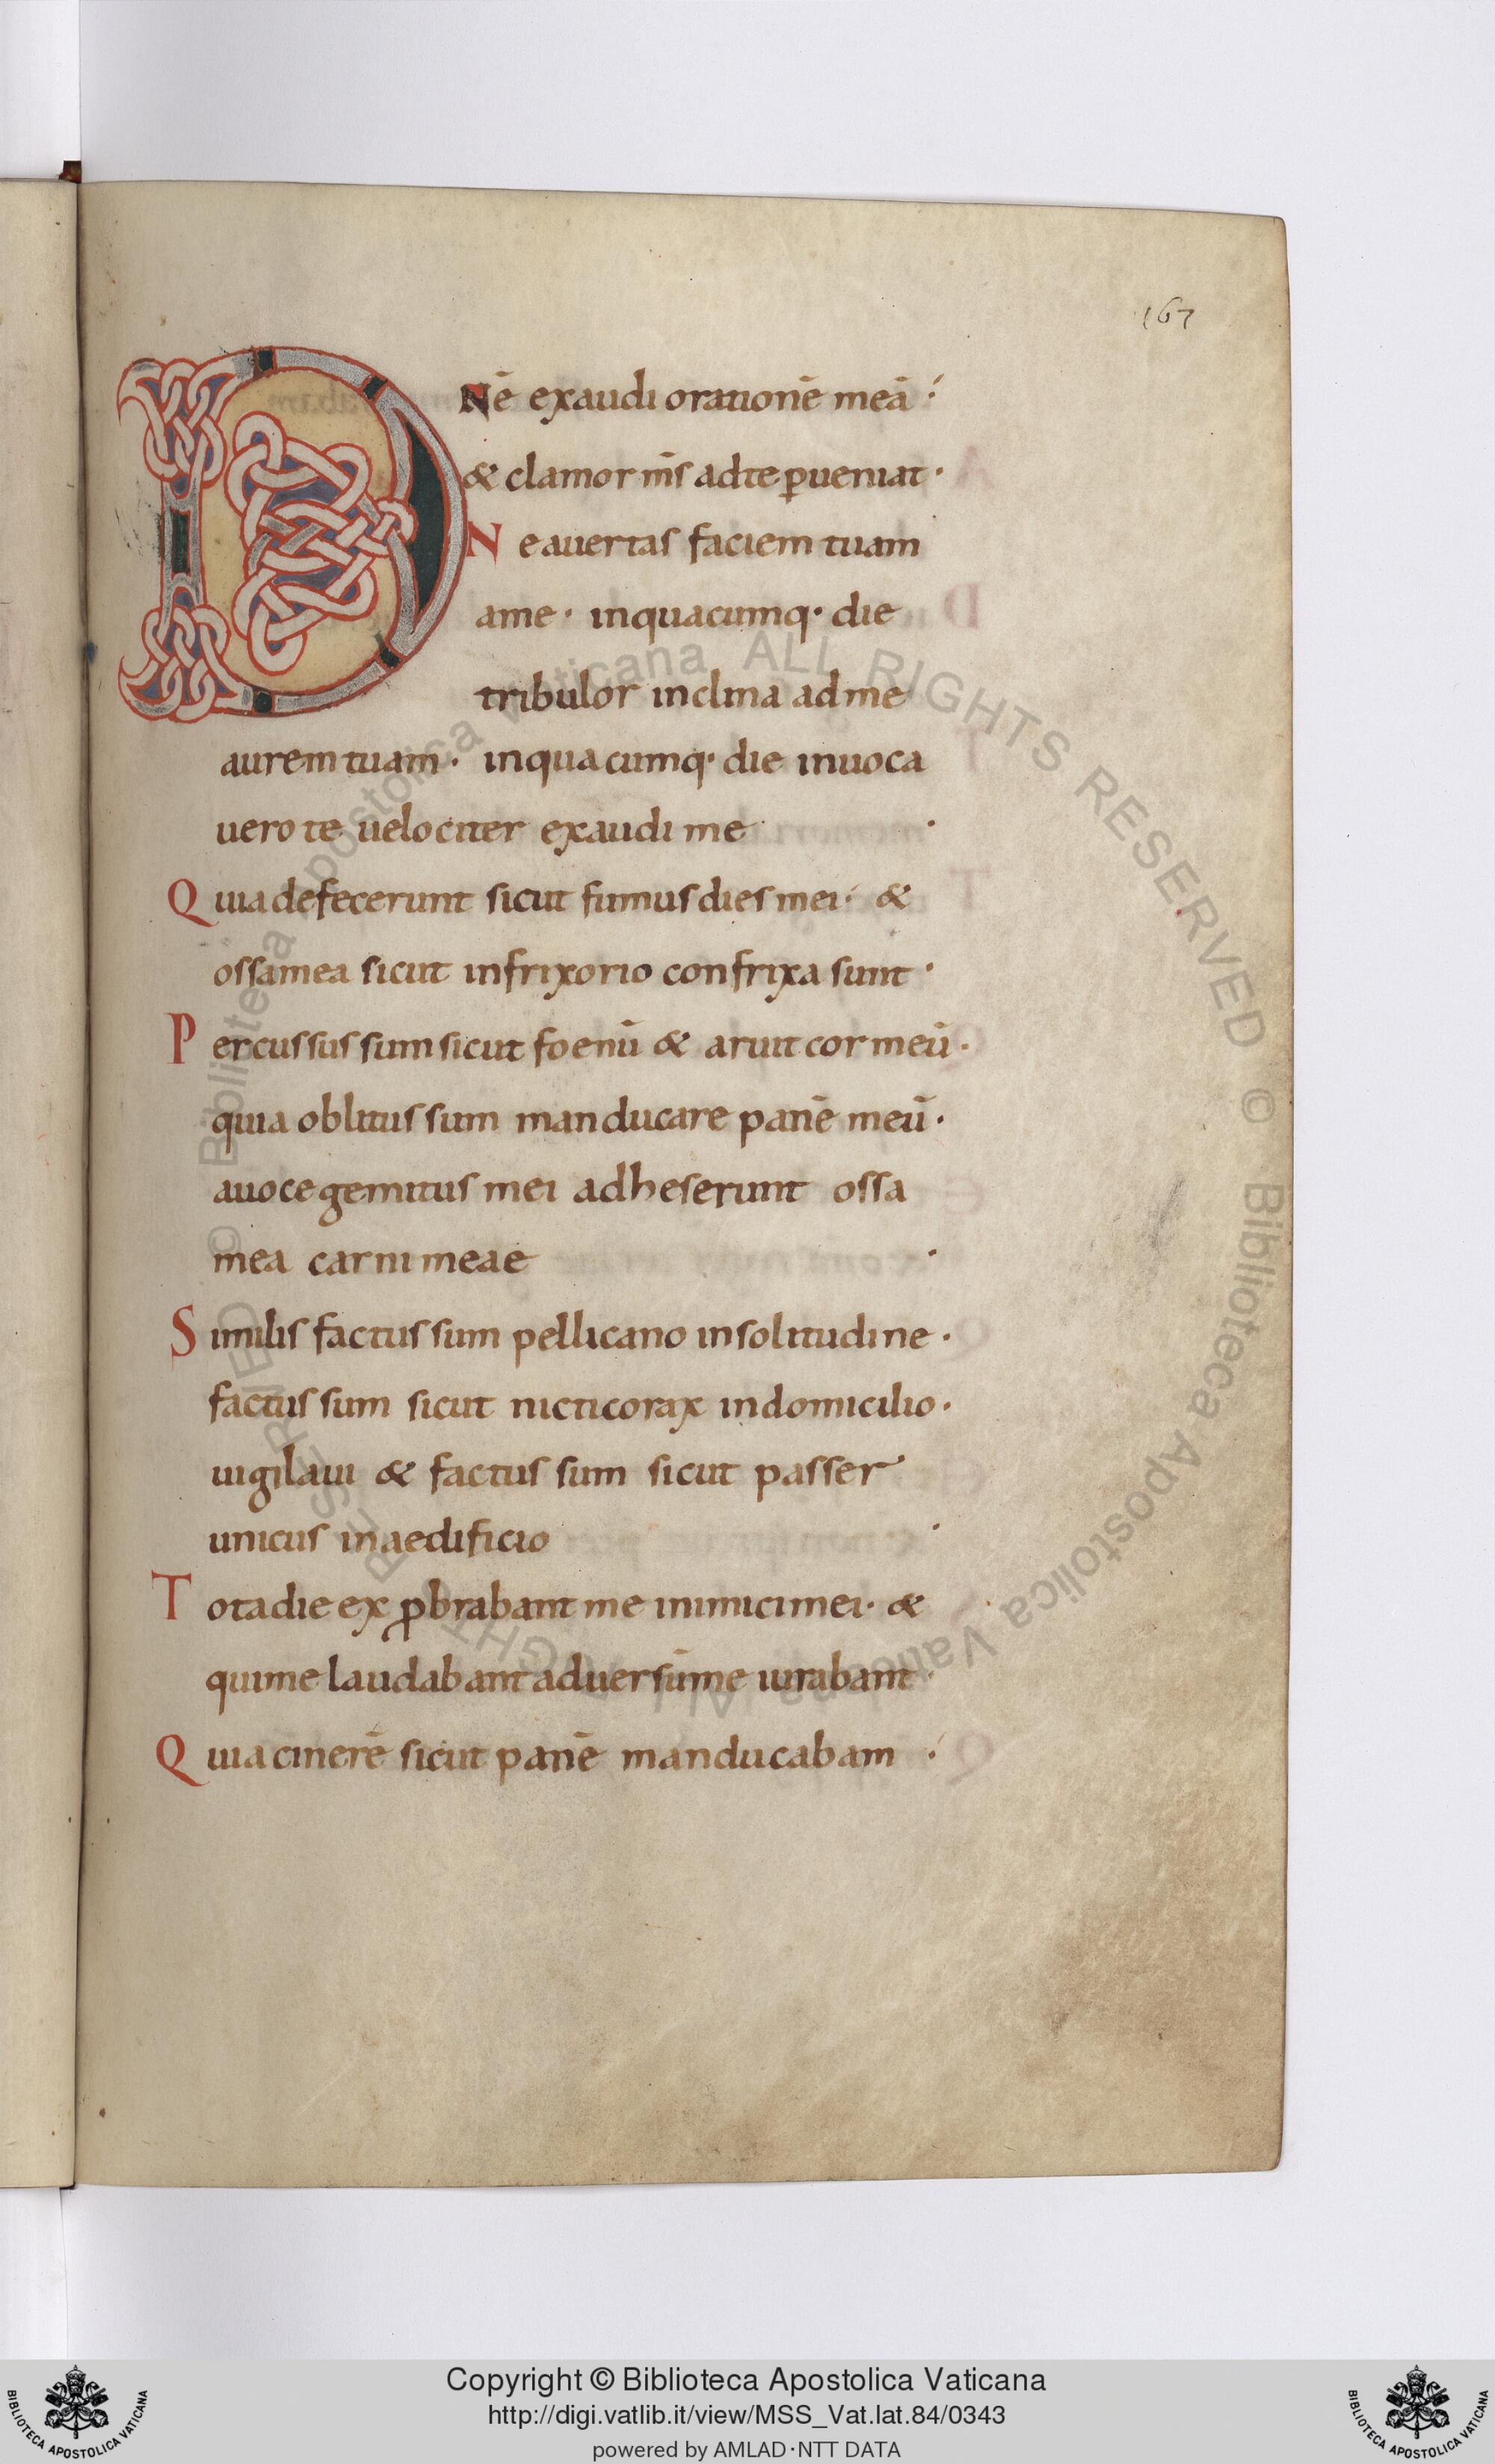 167
DNē exaudi orationē meā·
& clamor m̄s adte ꝑueniat·
Ne auertas faciem tuam
ame· inquacumq· die
tribulor inclina adme
aurem tuam· inquacumq· die inuoca
uero te uelociter exaudi me·
Quia defecerunt sicut fumus dies mei· &
ossamea sicut infrixorio confrixa sunt·
Percussus sum sicut foenū & aruit cor meū·
quia oblitus sum manducare panē meū·
auoce gemitus mei adheserunt ossa
mea carni meae·
Similis factus sum pellicano insolitudine·
factus sum sicut nicticorax indomicilio·
uigilaui & factus sum sicut passer
unicus inaedificio·
Tota die exꝓbrabant me inimici mei· &
quime laudabant aduersūme iurabant·
Quia cinerē sicut panē manducabam·
© Biblioteca Apostolica Vaticana ALL RIGHTS RESERVED © Biblioteca Apostolica Vaticana ALL RIGHTS RESERVED
Copyright © Biblioteca Apostolica Vaticana
http://digi.vatlib.it/view/MSS_Vat.lat.84/0343
powered by AMLAD·NTT DATA
BIBLIOTECA APOSTOLICA VATICANA
BIBLIOTECA APOSTOLICA VATICANA